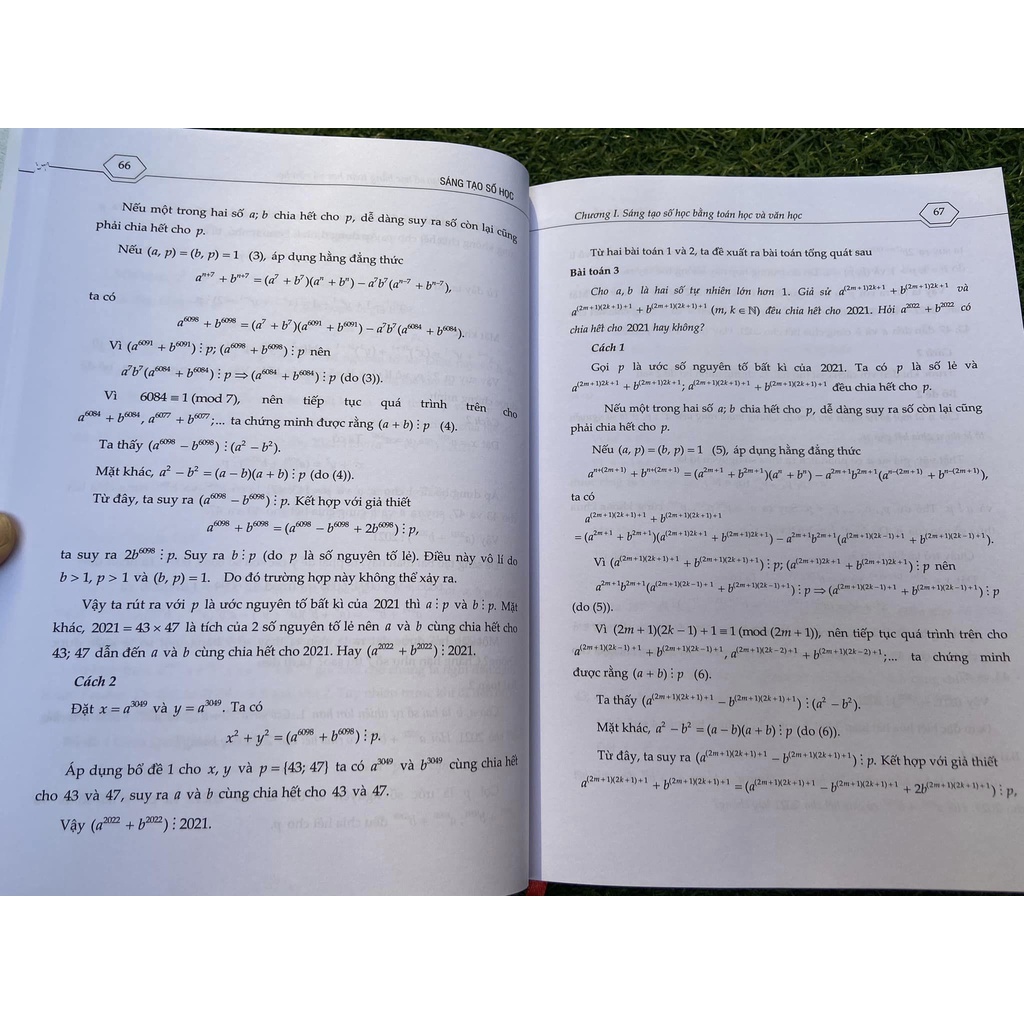 66
SÁNG TẠO SỐ HỌC
Nếu một trong hai số a; b chia hết cho p, dễ dàng suy ra số còn lại cũng
phải chia hết cho p.
Nếu (a, p) = (b, p) = 1 (3), áp dụng hằng đẳng thức
aⁿ⁺⁷ + bⁿ⁺⁷ = (a⁷ + b⁷)(aⁿ + bⁿ) − a⁷b⁷(aⁿ⁻⁷ + bⁿ⁻⁷),
ta có
a⁶⁰⁹⁸ + b⁶⁰⁹⁸ = (a⁷ + b⁷)(a⁶⁰⁹¹ + b⁶⁰⁹¹) − a⁷b⁷(a⁶⁰⁸⁴ + b⁶⁰⁸⁴).
Vì (a⁶⁰⁹¹ + b⁶⁰⁹¹)⋮p; (a⁶⁰⁹⁸ + b⁶⁰⁹⁸)⋮p nên
a⁷b⁷(a⁶⁰⁸⁴ + b⁶⁰⁸⁴)⋮p ⇒ (a⁶⁰⁸⁴ + b⁶⁰⁸⁴)⋮p (do (3)).
Vì 6084 ≡ 1 (mod 7), nên tiếp tục quá trình trên cho
a⁶⁰⁸⁴ + b⁶⁰⁸⁴, a⁶⁰⁷⁷ + b⁶⁰⁷⁷;... ta chứng minh được rằng (a + b)⋮p (4).
Ta thấy (a⁶⁰⁹⁸ − b⁶⁰⁹⁸)⋮(a² − b²).
Mặt khác, a² − b² = (a − b)(a + b)⋮p (do (4)).
Từ đây, ta suy ra (a⁶⁰⁹⁸ − b⁶⁰⁹⁸)⋮p. Kết hợp với giả thiết
a⁶⁰⁹⁸ + b⁶⁰⁹⁸ = (a⁶⁰⁹⁸ − b⁶⁰⁹⁸ + 2b⁶⁰⁹⁸)⋮p,
ta suy ra 2b⁶⁰⁹⁸⋮p. Suy ra b⋮p (do p là số nguyên tố lẻ). Điều này vô lí do
b > 1, p > 1 và (b, p) = 1. Do đó trường hợp này không thể xảy ra.
Vậy ta rút ra với p là ước nguyên tố bất kì của 2021 thì a⋮p và b⋮p. Mặt
khác, 2021 = 43 × 47 là tích của 2 số nguyên tố lẻ nên a và b cùng chia hết cho
43; 47 dẫn đến a và b cùng chia hết cho 2021. Hay (a²⁰²² + b²⁰²²)⋮2021.
Cách 2
Đặt x = a³⁰⁴⁹ và y = a³⁰⁴⁹. Ta có
x² + y² = (a⁶⁰⁹⁸ + b⁶⁰⁹⁸)⋮p.
Áp dụng bổ đề 1 cho x, y và p = {43; 47} ta có a³⁰⁴⁹ và b³⁰⁴⁹ cùng chia hết
cho 43 và 47, suy ra a và b cùng chia hết cho 43 và 47.
Vậy (a²⁰²² + b²⁰²²)⋮2021.
Chương I. Sáng tạo số học bằng toán học và văn học
67
Từ hai bài toán 1 và 2, ta đề xuất ra bài toán tổng quát sau
Bài toán 3
Cho a, b là hai số tự nhiên lớn hơn 1. Giả sử a^(2m+1)2k+1 + b^(2m+1)2k+1 và
a^(2m+1)(2k+1)+1 + b^(2m+1)(2k+1)+1 (m, k ∈ ℕ) đều chia hết cho 2021. Hỏi a²⁰²² + b²⁰²² có
chia hết cho 2021 hay không?
Cách 1
Gọi p là ước số nguyên tố bất kì của 2021. Ta có p là số lẻ và
a^(2m+1)2k+1 + b^(2m+1)2k+1; a^(2m+1)(2k+1)+1 + b^(2m+1)(2k+1)+1 đều chia hết cho p.
Nếu một trong hai số a; b chia hết cho p, dễ dàng suy ra số còn lại cũng
phải chia hết cho p.
Nếu (a, p) = (b, p) = 1 (5), áp dụng hằng đẳng thức
a^n+(2m+1) + b^n+(2m+1) = (a^2m+1 + b^2m+1)(aⁿ + bⁿ) − a^2m+1b^2m+1(a^n−(2m+1) + b^n−(2m+1)),
ta có
a^(2m+1)(2k+1)+1 + b^(2m+1)(2k+1)+1
= (a^2m+1 + b^2m+1)(a^(2m+1)2k+1 + b^(2m+1)2k+1) − a^2m+1b^2m+1(a^(2m+1)(2k−1)+1 + b^(2m+1)(2k−1)+1).
Vì (a^(2m+1)(2k+1)+1 + b^(2m+1)(2k+1)+1)⋮p; (a^(2m+1)2k+1 + b^(2m+1)2k+1)⋮p nên
a^2m+1b^2m+1(a^(2m+1)(2k−1)+1 + b^(2m+1)(2k−1)+1)⋮p ⇒ (a^(2m+1)(2k−1)+1 + b^(2m+1)(2k−1)+1)⋮p
(do (5)).
Vì (2m + 1)(2k − 1) + 1 ≡ 1 (mod (2m + 1)), nên tiếp tục quá trình trên cho
a^(2m+1)(2k−1)+1 + b^(2m+1)(2k−1)+1, a^(2m+1)(2k−2)+1 + b^(2m+1)(2k−2)+1;... ta chứng minh
được rằng (a + b)⋮p (6).
Ta thấy (a^(2m+1)(2k+1)+1 − b^(2m+1)(2k+1)+1)⋮(a² − b²).
Mặt khác, a² − b² = (a − b)(a + b)⋮p (do (6)).
Từ đây, ta suy ra (a^(2m+1)(2k+1)+1 − b^(2m+1)(2k+1)+1)⋮p. Kết hợp với giả thiết
a^(2m+1)(2k+1)+1 + b^(2m+1)(2k+1)+1 = (a^(2m+1)(2k+1)+1 − b^(2m+1)(2k+1)+1 + 2b^(2m+1)(2k+1)+1)⋮p,